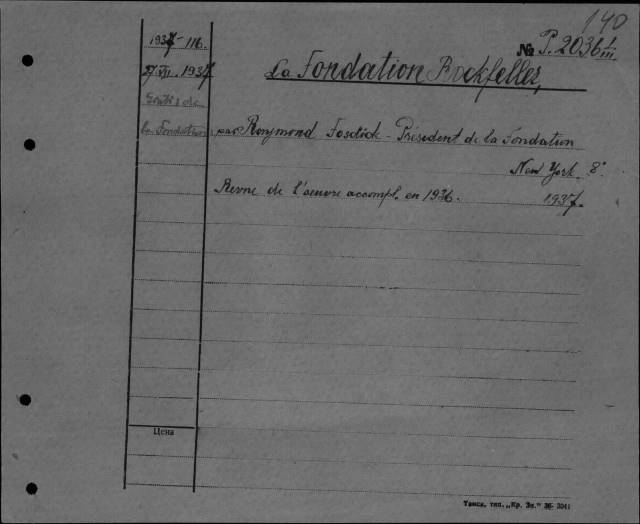 140
1937-116.
№ P. 2036 I/III
27 VII. 1937
La Fondation Rockfeller,
la Fondation par Raymond Fosdick - Président de la Fondation
New York. 8°
Revue de l'oeuvre accompl. en 1936. 1937.
Цена
Томск, тип. „Кр. Зн." 36- 3041